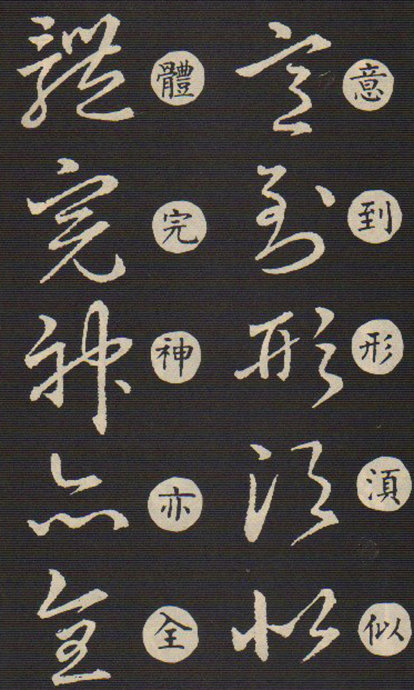 意到形湏似
意到形湏似
體完神亦全
體完神亦全